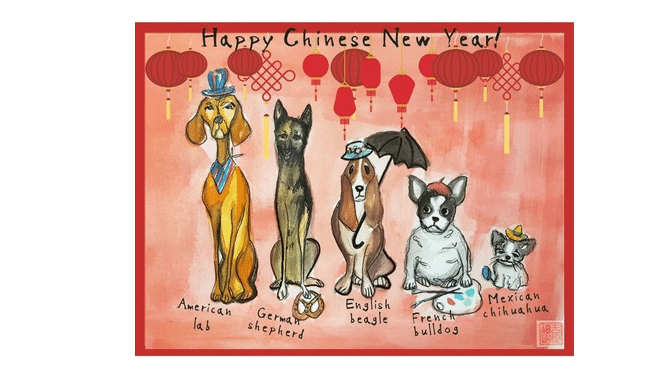 Happy Chinese New Year!
American
lab
German
shepherd
English
beagle
French
bulldog
Mexican
chihuahua